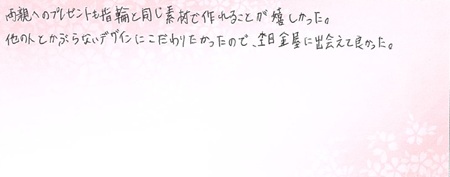 両親へのプレゼントも指輪と同じ素材で作れることが嬉しかった。
他の人とかぶらないデザインにこだわりたかったので、杢目金屋に出会えて良かった。